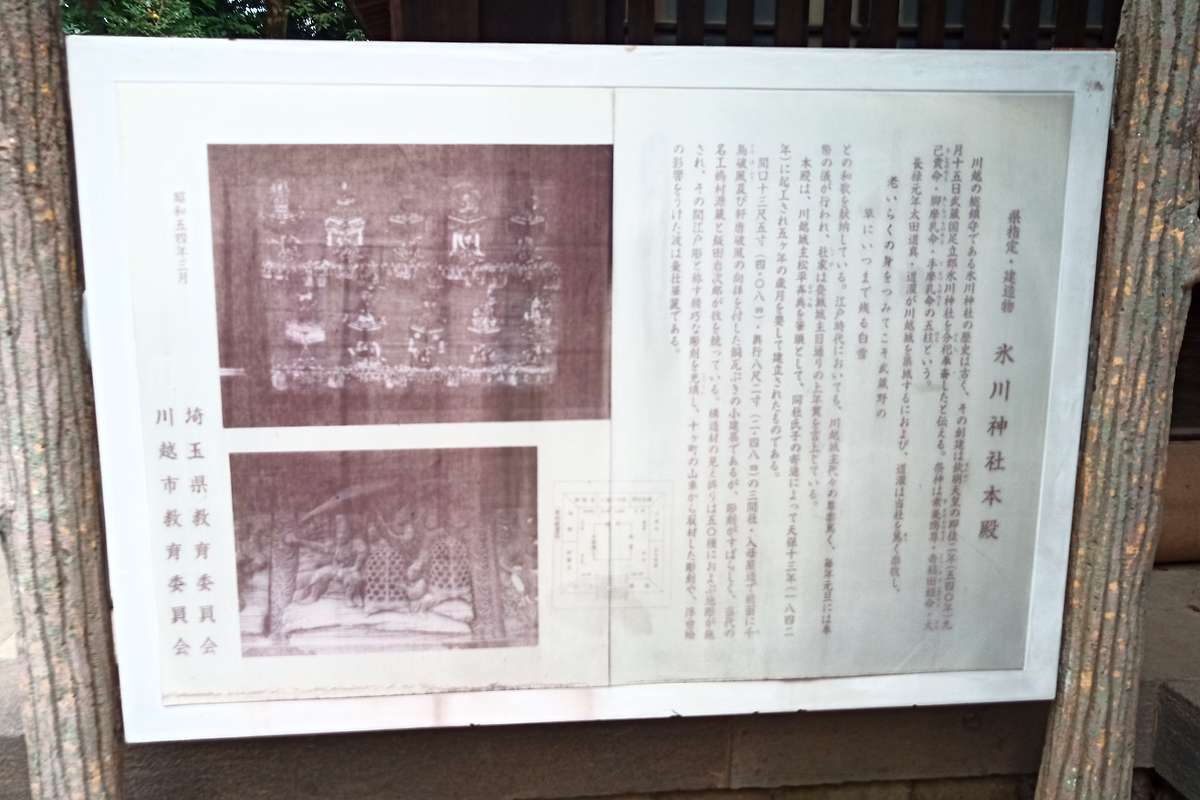 県指定・建造物　氷川神社本殿
川越の総鎮守である氷川神社の歴史は古く、その創建は欽明天皇の即位二年(五四〇年)九
月十五日武蔵国足立郡氷川神社を分祀奉斎したと伝える。祭神は素盞嗚尊・奇稲田姫命・大
己貴命・脚摩乳命・手摩乳命の五柱という。
長禄元年太田道真・道灌が川越城を築城するにおよび、道灌は当社を篤く崇敬し、
老いらくの身をつみてこそ武蔵野の
草にいつまで残る白雪
との和歌を献納している。江戸時代においても、川越城主代々の尊崇篤く、毎年元旦には奉
幣の儀が行われ、社家は登城城主目通りの上年賀を言上している。
本殿は、川越城主松平斉典を筆頭として、同社氏子の寄進によって天保十三年(一八四二
年)に起工され五ヶ年の歳月を要して建立されたものである。
間口十三尺五寸(四・〇八m)・奥行八尺二寸(二・四八m)の三間社・入母屋造で前面に千
鳥破風及び軒唐破風の向拝を付した銅瓦ぶきの小建築であるが、彫刻がすばらしく、当代の
名工嶋村源蔵と飯田岩次郎が技を競っている。構造材の見え掛りは五〇種におよぶ地彫が施
され、その間江戸彫と称す精巧な彫刻を充填し、十ヶ町の山車から取材した彫刻や、浮世絵
の影響をうけた波は豪壮華麗である。
昭和五四年三月
埼玉県教育委員会
川越市教育委員会